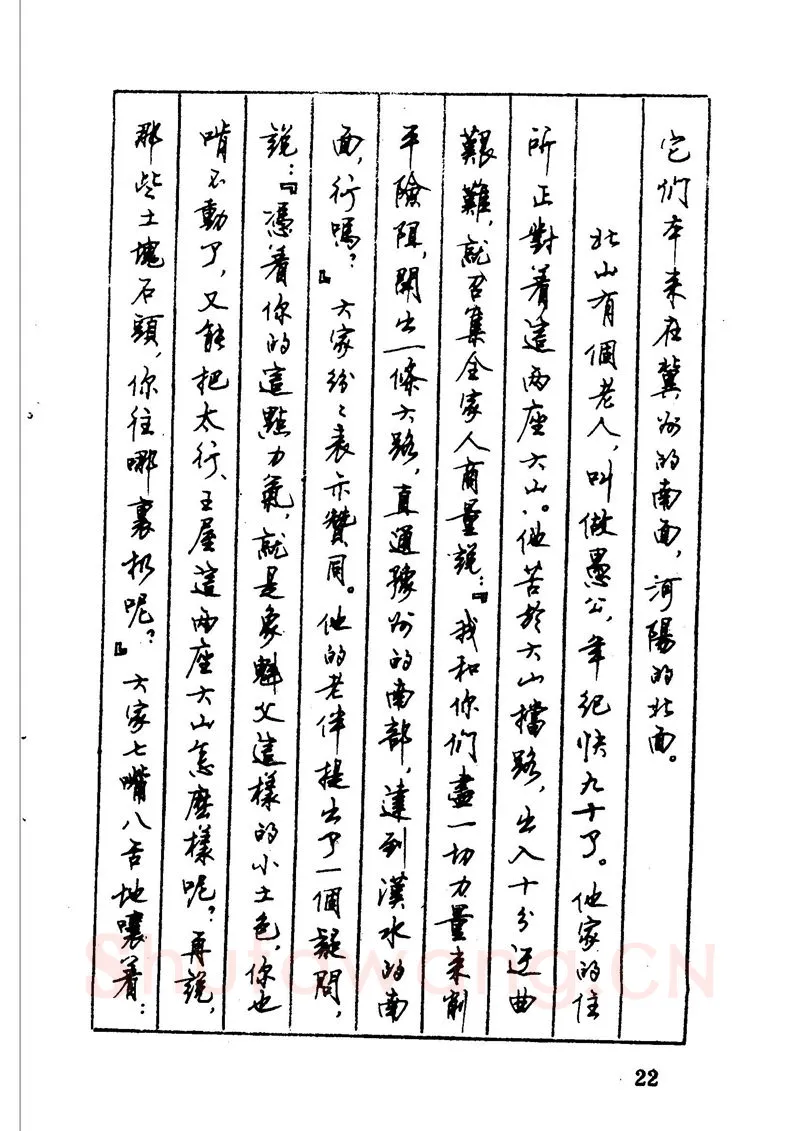 它們本来在冀州的南面，河陽的北面。
北山有個老人，叫做愚公，年纪快九十了。他家的住
所正對着這两座大山。他苦於大山擋路，出入十分迂曲
艱難，就召集全家人商量説：『我和你們盡一切力量来削
平險阻，開出一條大路，直通豫州的南部，達到漢水的南
面，行嗎？』大家纷々表示贊同。他的老伴提出了一個疑問，
説：『憑着你的這點力氣，就是象魁父這樣的小土包，你也
啃不動了，又能把太行、王屋這两座大山怎麽樣呢？再説，
那些土塊石頭，你往哪裏扔呢？』大家七嘴八舌地嚷着：
Shufawang.CN
22